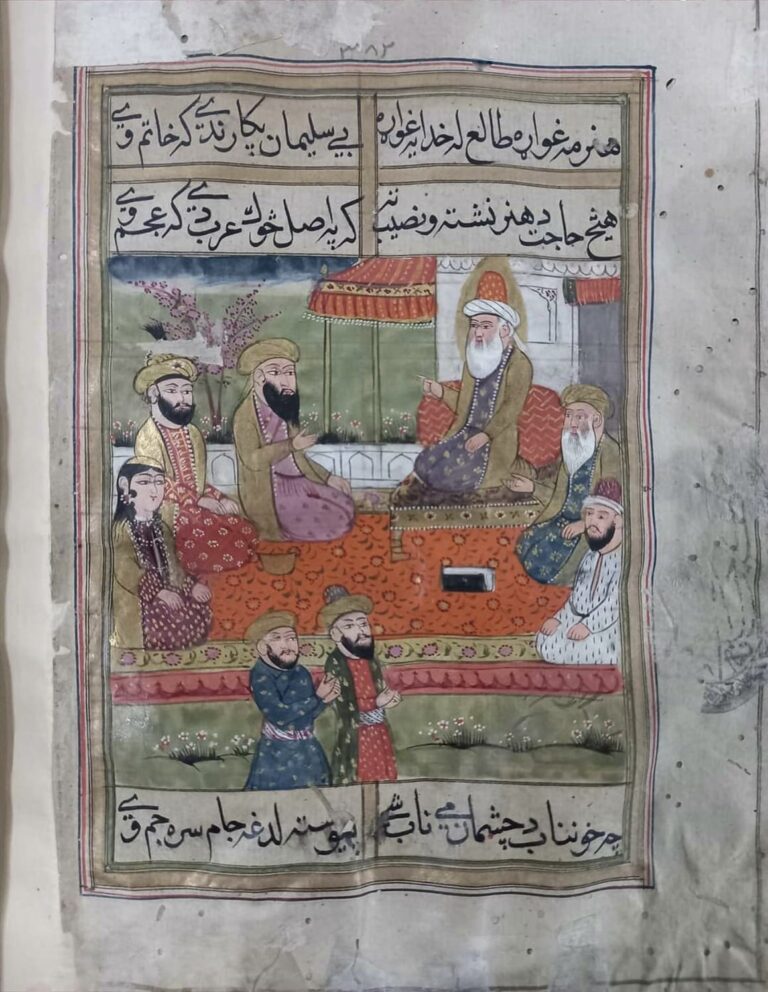 ۳۸۲
هنر مه غواړه طالع له خدایه غواړه بے سلیمان پکار ندے که خاتم وے
هیڅ حاجت د هنر نشته و نصیب ته که په اصل څوک عرب دے که عجم وے
چه خونناب د چشمان مے ناب شے پیوسته لدغه جام سره جم وے